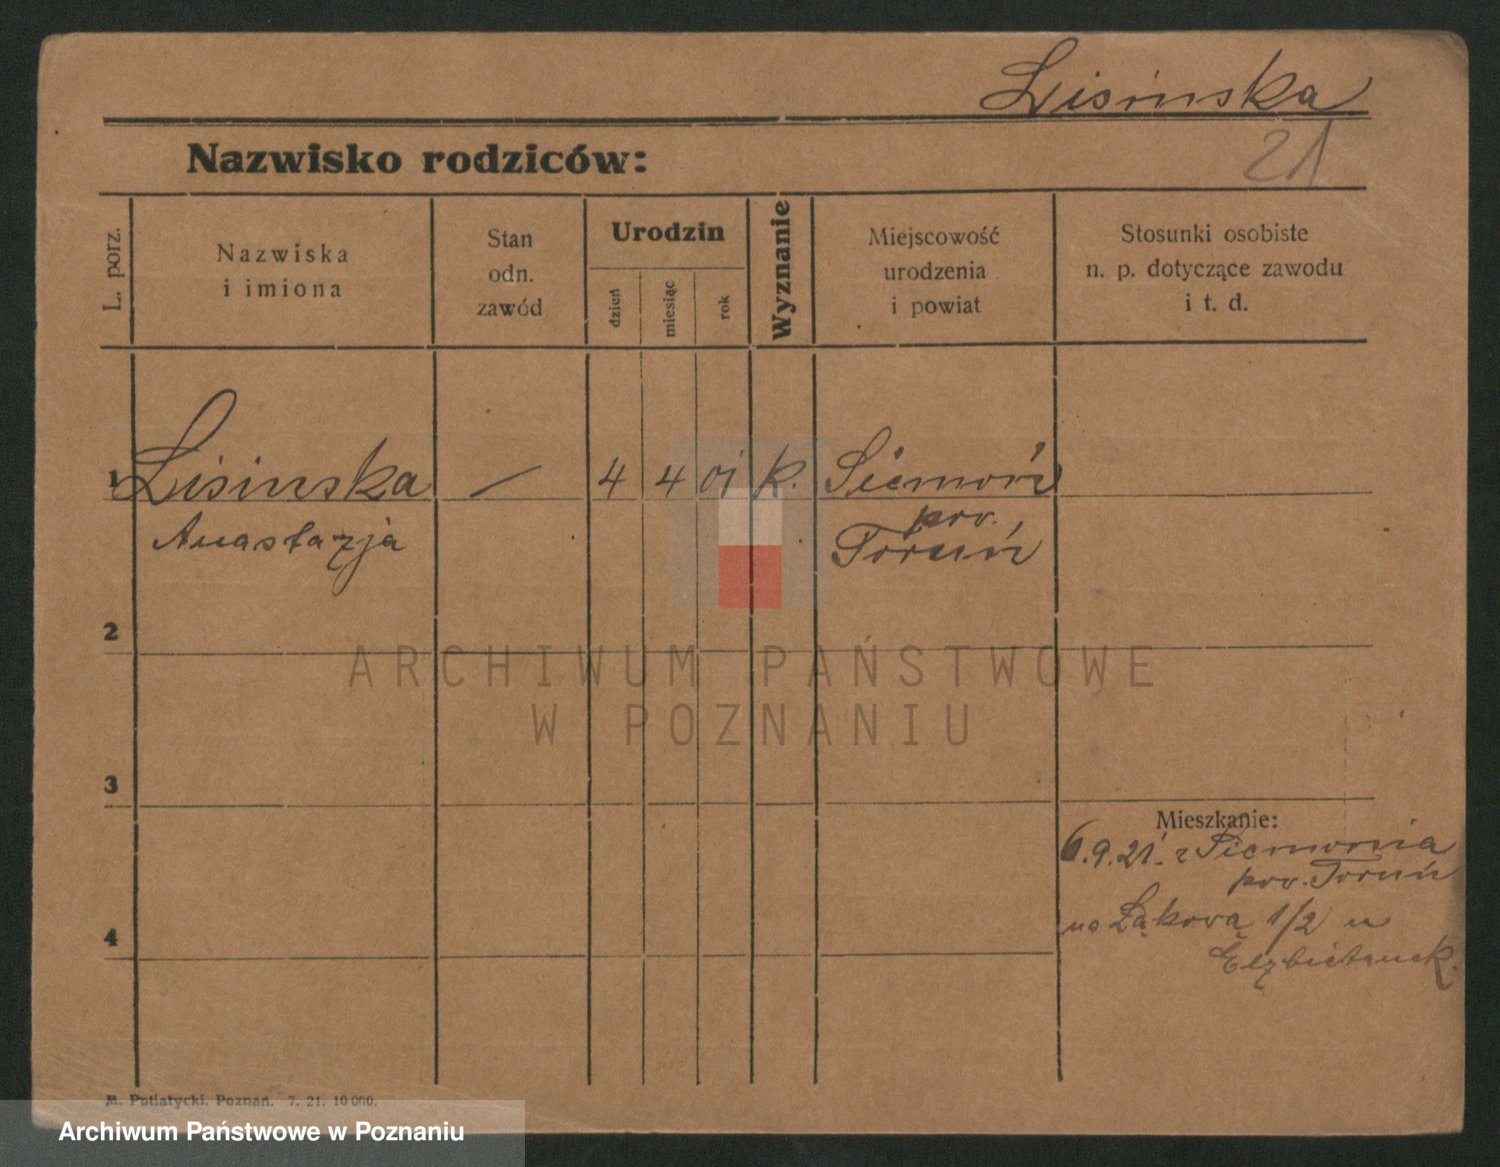 Lisinska
21
Nazwisko rodziców:
L. porz.
Nazwiska
i imiona
Stan
odn.
zawód
Urodzin
dzień
miesiąc
rok
Wyznanie
Miejscowość
urodzenia
i powiat
Stosunki osobiste
n. p. dotyczące zawodu
i t. d.
1 Lisinska — 4 4 01 k. Siemoń
pow.
Anastazja Toruń
2
ARCHIWUM PAŃSTWOWE
W POZNANIU
3
Mieszkanie:
6.9.21. z Siemonia
pow. Toruń
na Łąkową 1/2 u
4
Elżbietanek.
M. Putiatycki. Poznań. 7. 21. 10000.
Archiwum Państwowe w Poznaniu